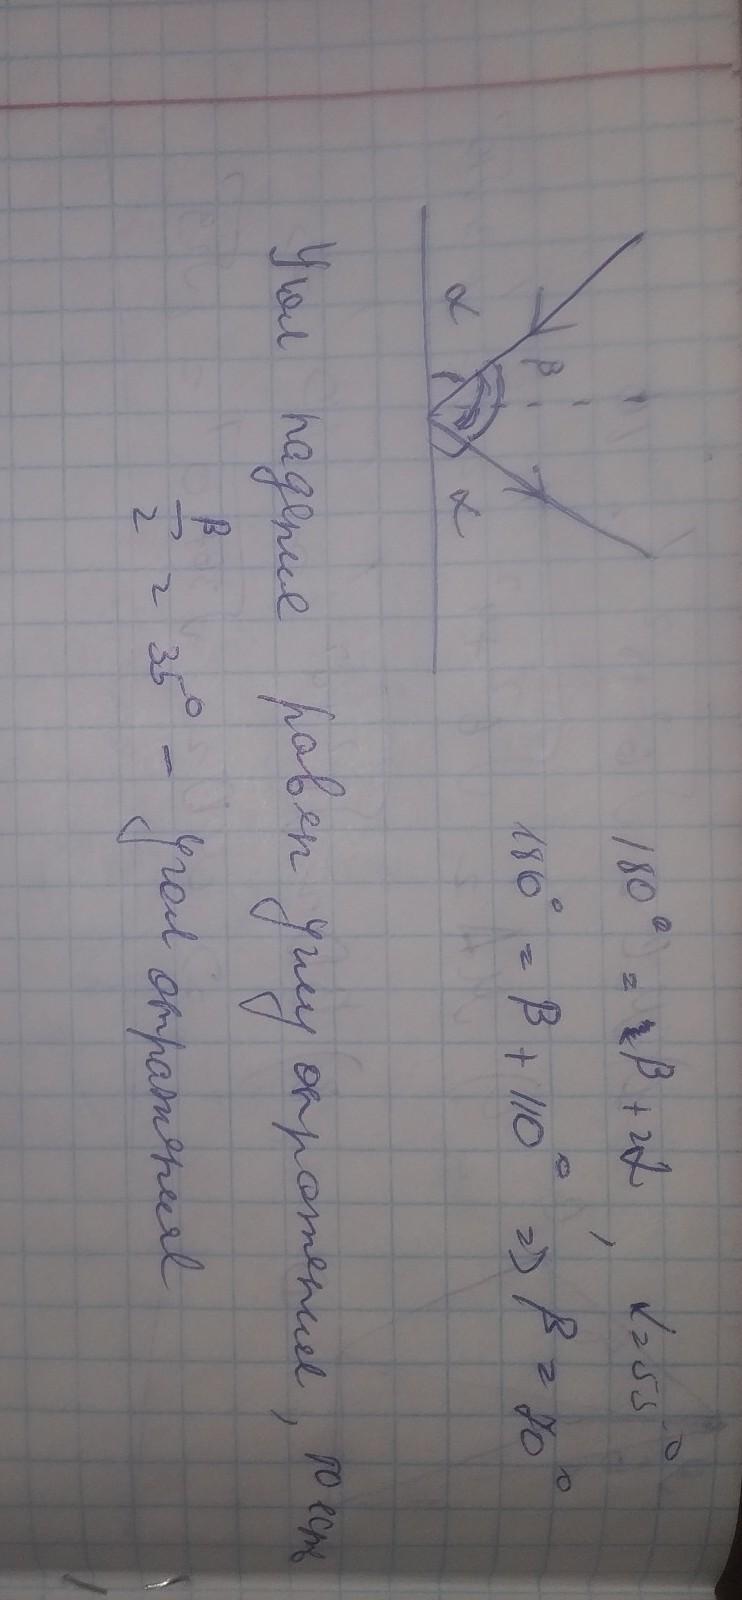 α
β
α
180° = β + 2α , α = 55°
180° = β + 110° => β = 70°
Угол падения равен углу отражения, то есть
β/2 = 35° - угол отражения